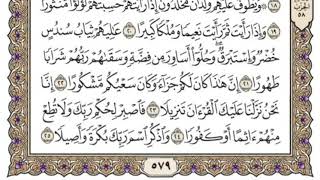 الحزب
٥٨
١٨ ۞ وَيَطُوفُ عَلَيْهِمْ وِلْدَٰنٌ مُّخَلَّدُونَ إِذَا رَأَيْتَهُمْ حَسِبْتَهُمْ لُؤْلُؤًا مَّنثُورًا
١٩ وَإِذَا رَأَيْتَ ثَمَّ رَأَيْتَ نَعِيمًا وَمُلْكًا كَبِيرًا ٢٠ عَٰلِيَهُمْ ثِيَابُ سُندُسٍ
خُضْرٌ وَإِسْتَبْرَقٌ ۖ وَحُلُّوٓا۟ أَسَاوِرَ مِن فِضَّةٍ وَسَقَىٰهُمْ رَبُّهُمْ شَرَابًا
طَهُورًا ٢١ إِنَّ هَٰذَا كَانَ لَكُمْ جَزَآءً وَكَانَ سَعْيُكُم مَّشْكُورًا ٢٢
إِنَّا نَحْنُ نَزَّلْنَا عَلَيْكَ ٱلْقُرْءَانَ تَنزِيلًا ٢٣ فَٱصْبِرْ لِحُكْمِ رَبِّكَ وَلَا تُطِعْ
مِنْهُمْ ءَاثِمًا أَوْ كَفُورًا ٢٤ وَٱذْكُرِ ٱسْمَ رَبِّكَ بُكْرَةً وَأَصِيلًا ٢٥
٥٧٩